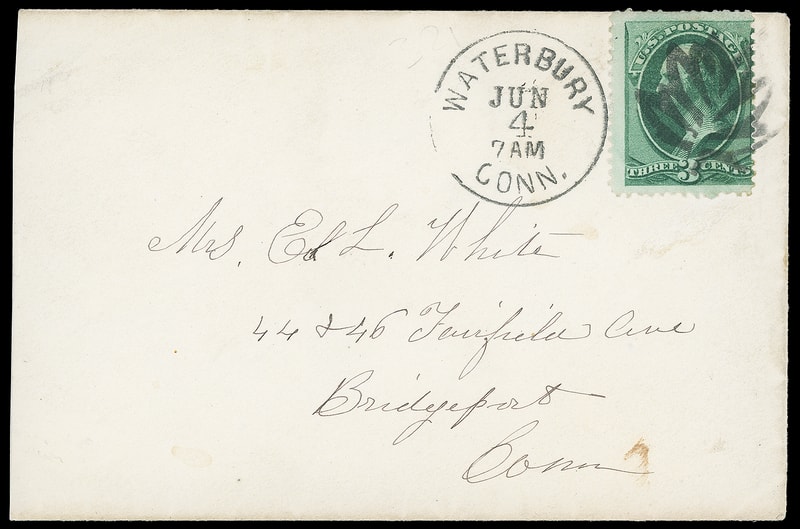 WATERBURY
JUN
4
7AM
CONN.
U.S. POSTAGE
THREE 3 CENTS
Mrs. Ed L. White
44 & 46 Fairfield Ave
Bridgeport
Conn